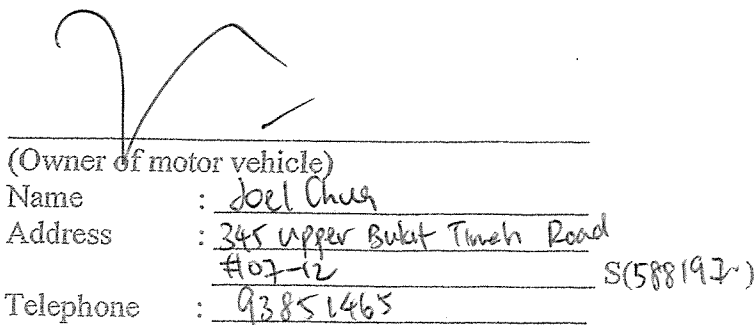 (Owner of motor vehicle)
Name : Joel Chua
Address : 345 Upper Bukit Timah Road
#07-12 S(588197)
Telephone : 93851465